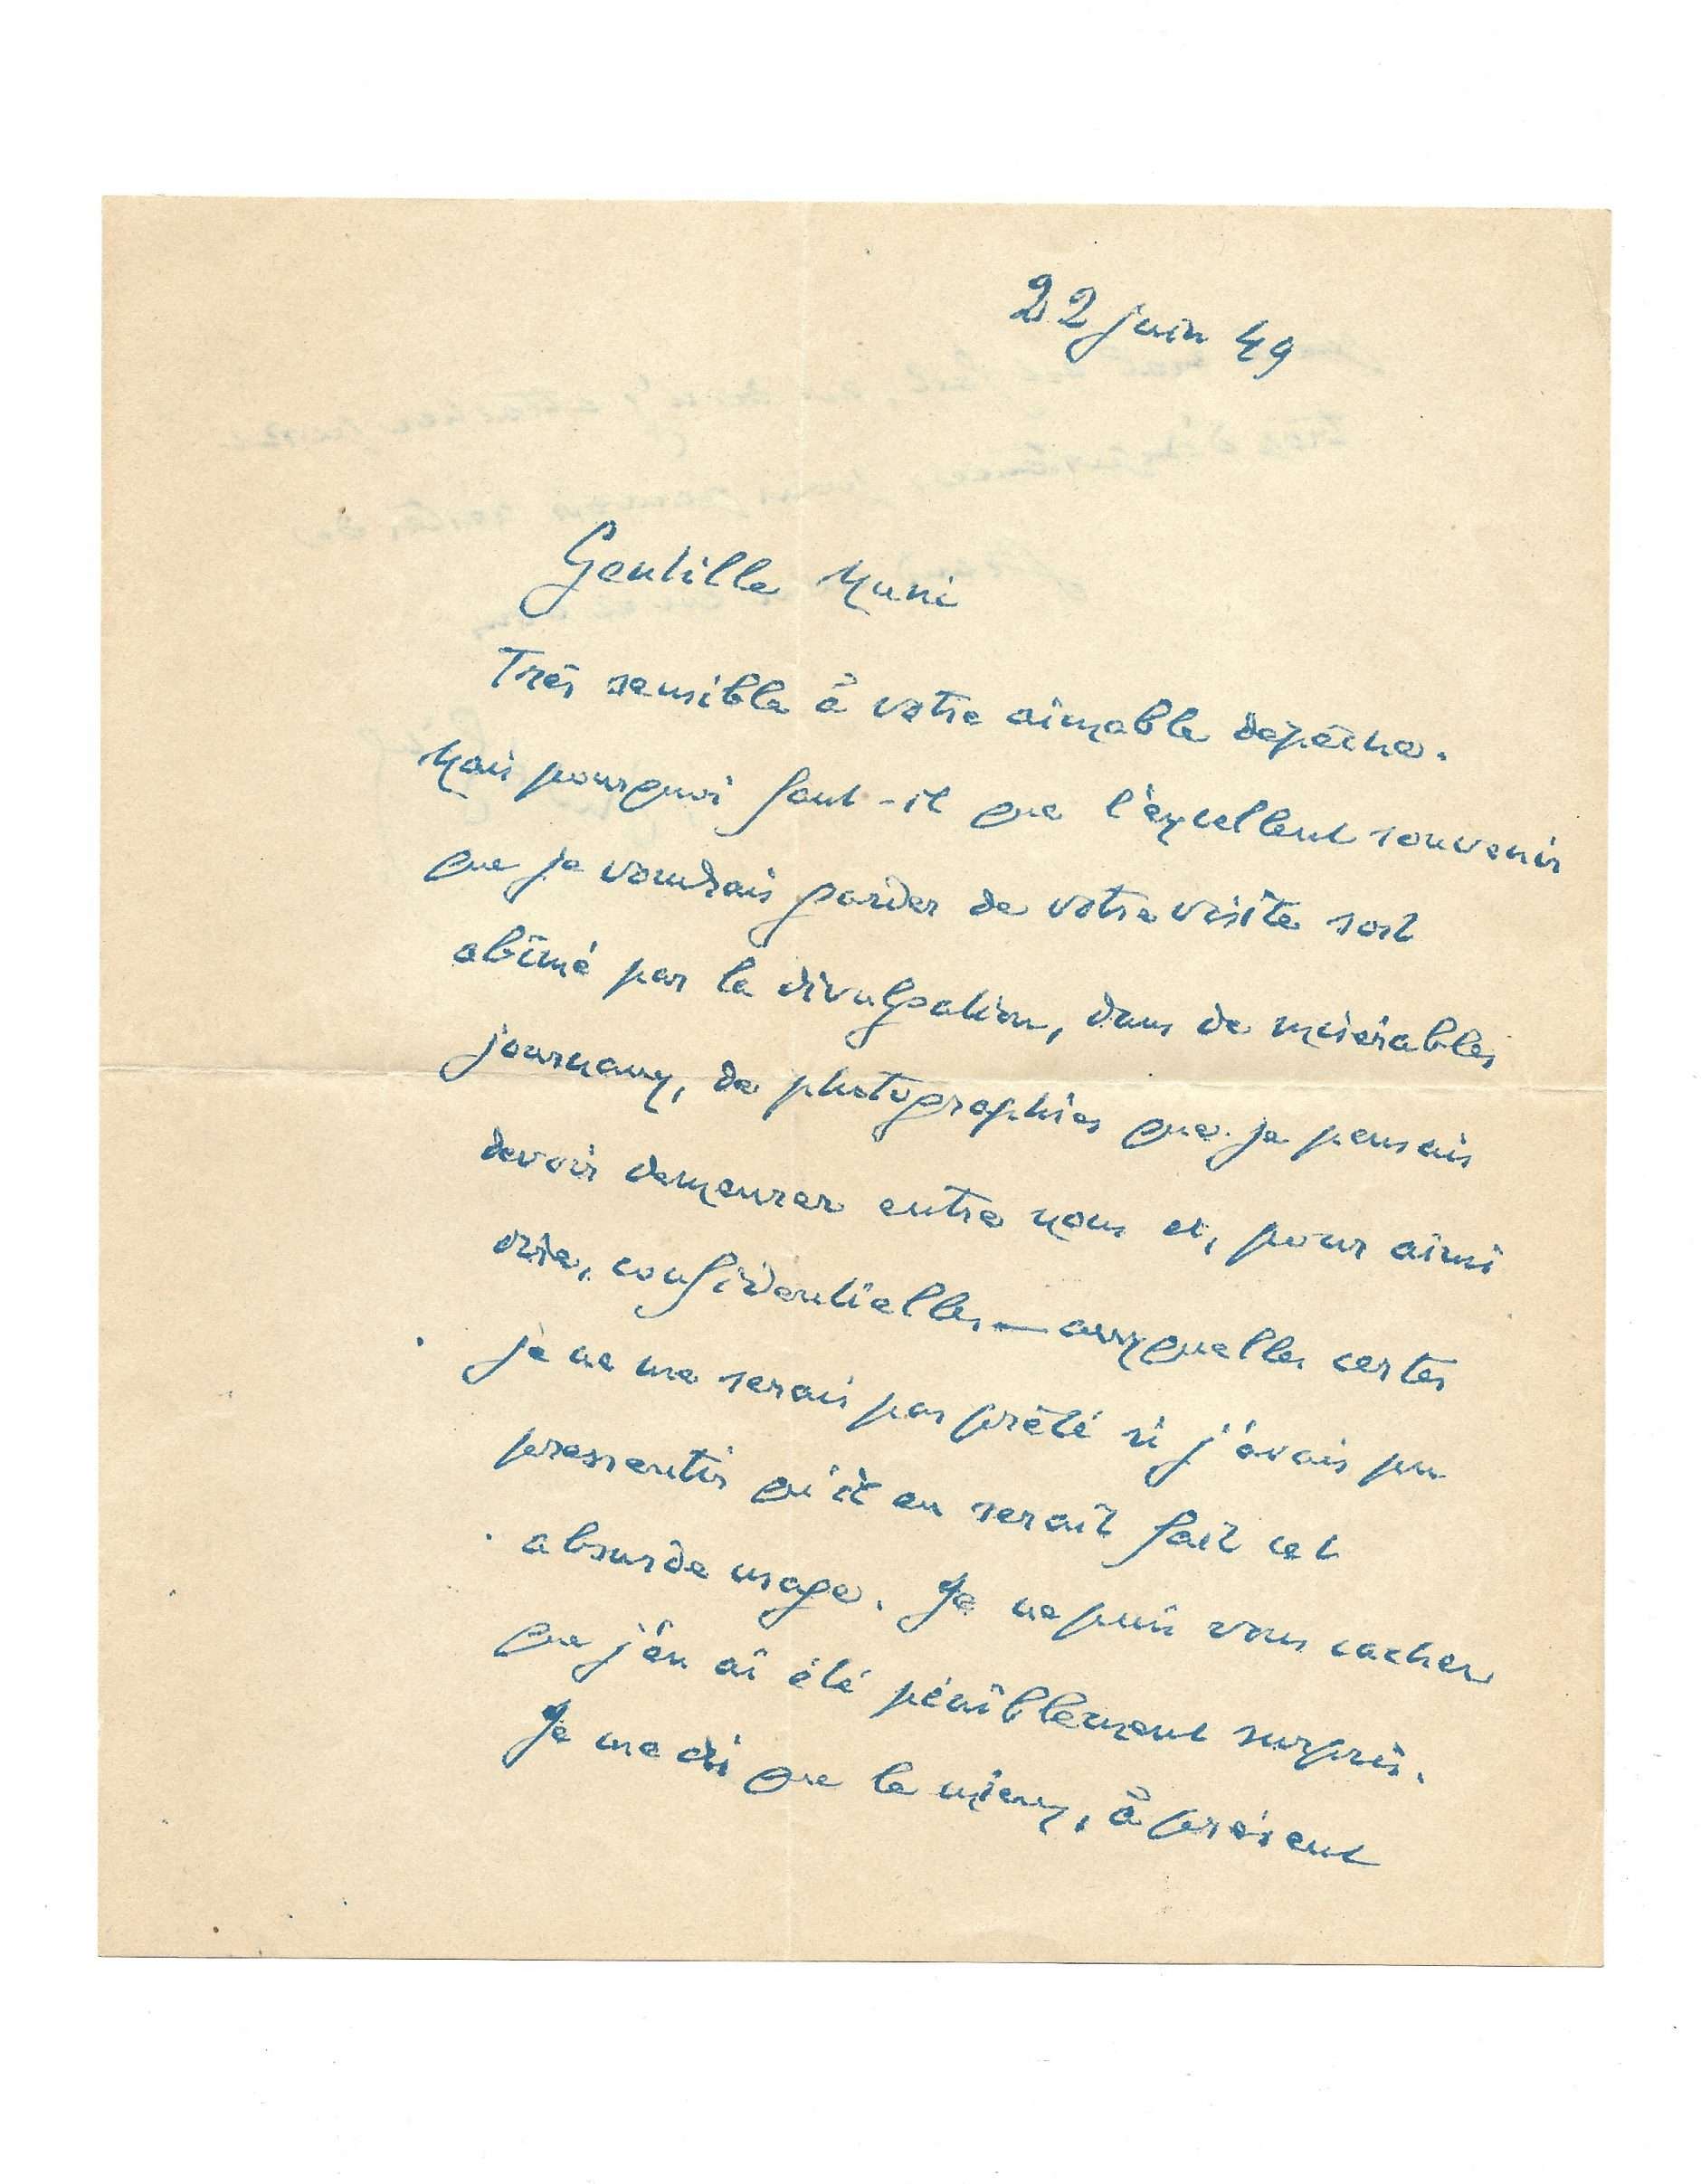 22 juin 49
Gentille Muni
Très sensible à votre aimable dépêche.
Mais pourquoi faut-il que l'excellent souvenir
que je voudrais garder de votre visite soit
abîmé par la divulgation, dans de misérables
journaux, de photographies que je pensais
devoir demeurer entre nous et, pour ainsi
dire, confidentielles — auxquelles certes
je ne me serais pas prêté si j'avais pu
pressentir qu'il en serait fait cet
absurde usage. Je ne puis vous cacher
que j'en ai été péniblement surpris.
Je me dis que le mieux, à présent